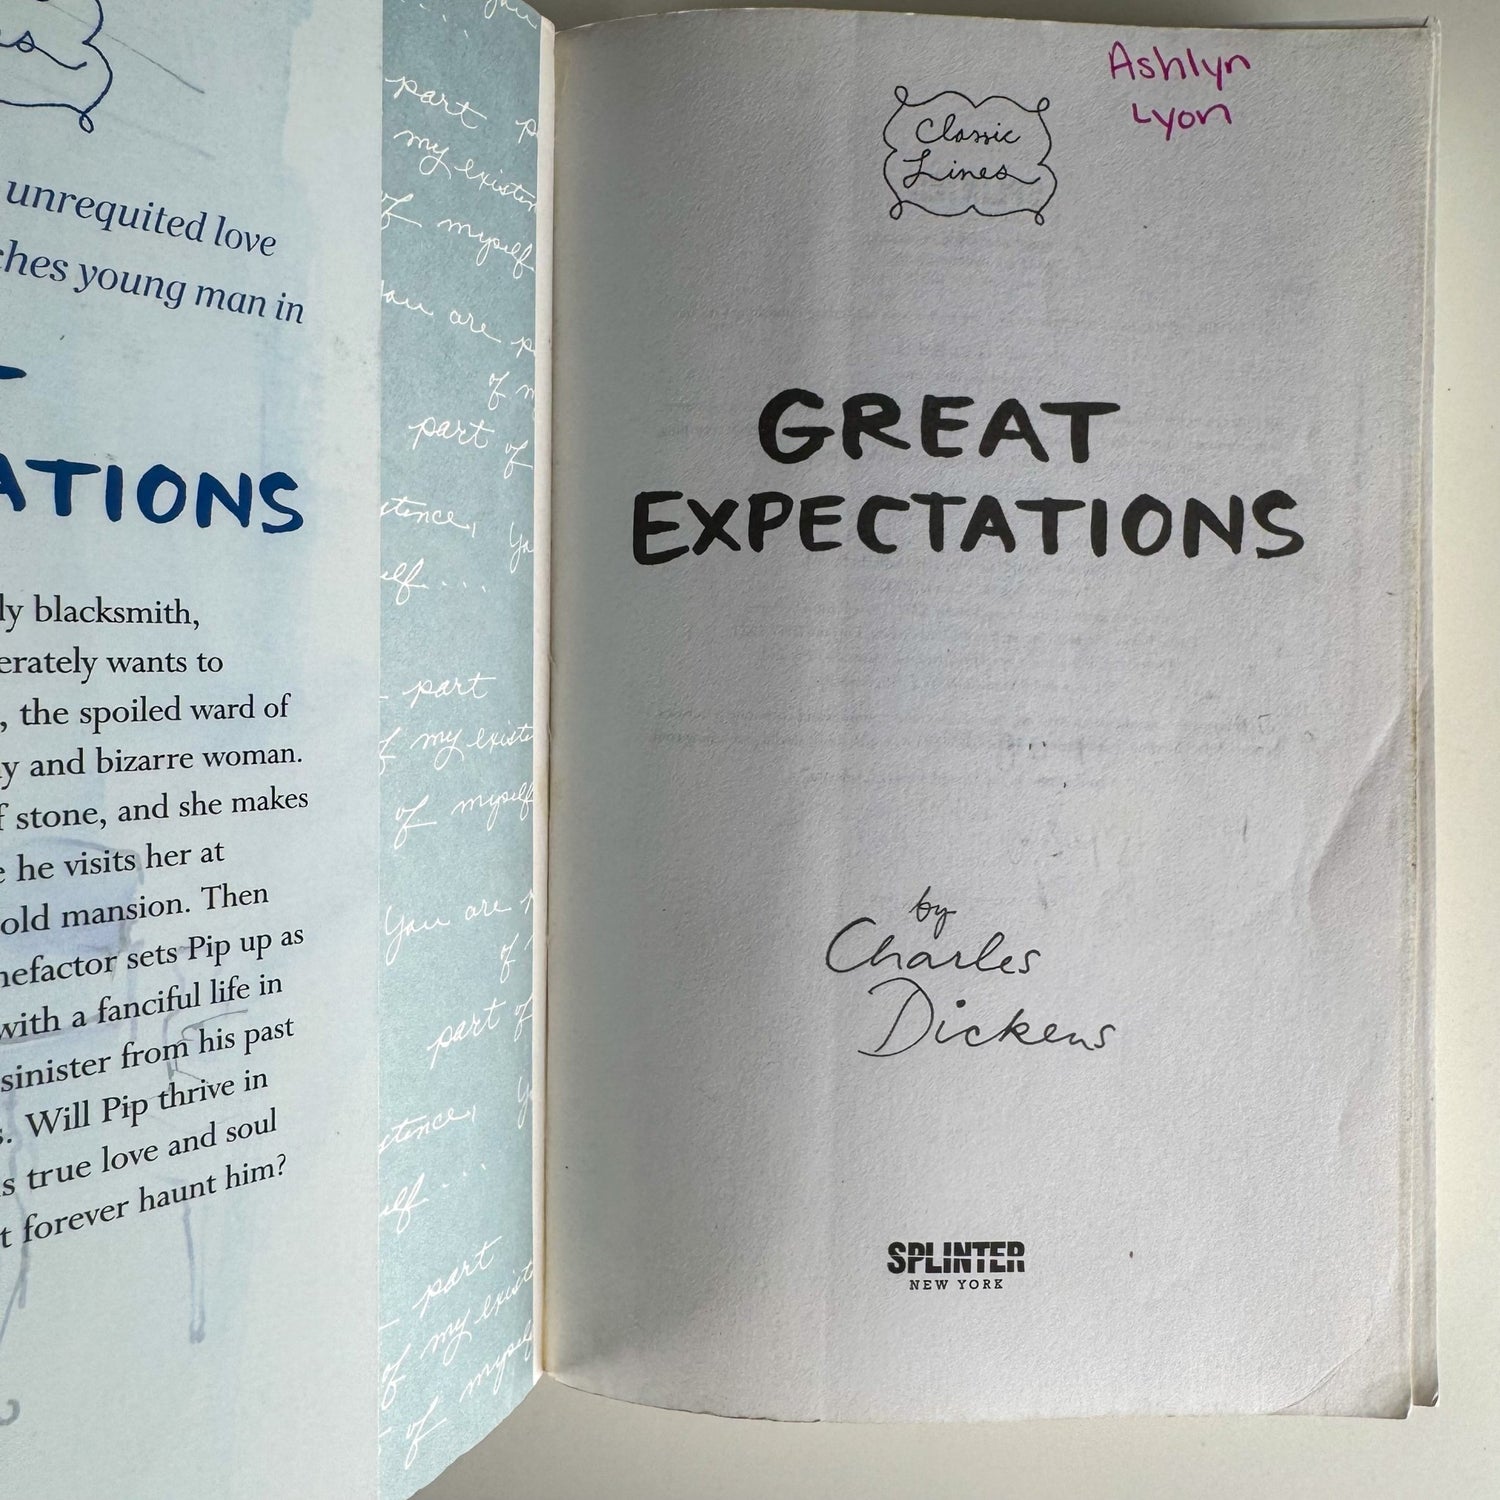 unrequited love
young man in
ATIONS
blacksmith,
wants to
, the spoiled ward of
and bizarre woman.
stone, and she makes
he visits her at
old mansion. Then
sets Pip up as
with a fanciful life in
sinister from his past
. Will Pip thrive in
true love and soul
forever haunt him?
you
part
my
of myself
you are
of
part of
you
part
of my
of myself
You are
of
part of
part
of my
of myself
of myself
Ashlyn
Lyon
Classic
Lines
GREAT
EXPECTATIONS
by
Charles
Dickens
SPLINTER
NEW YORK